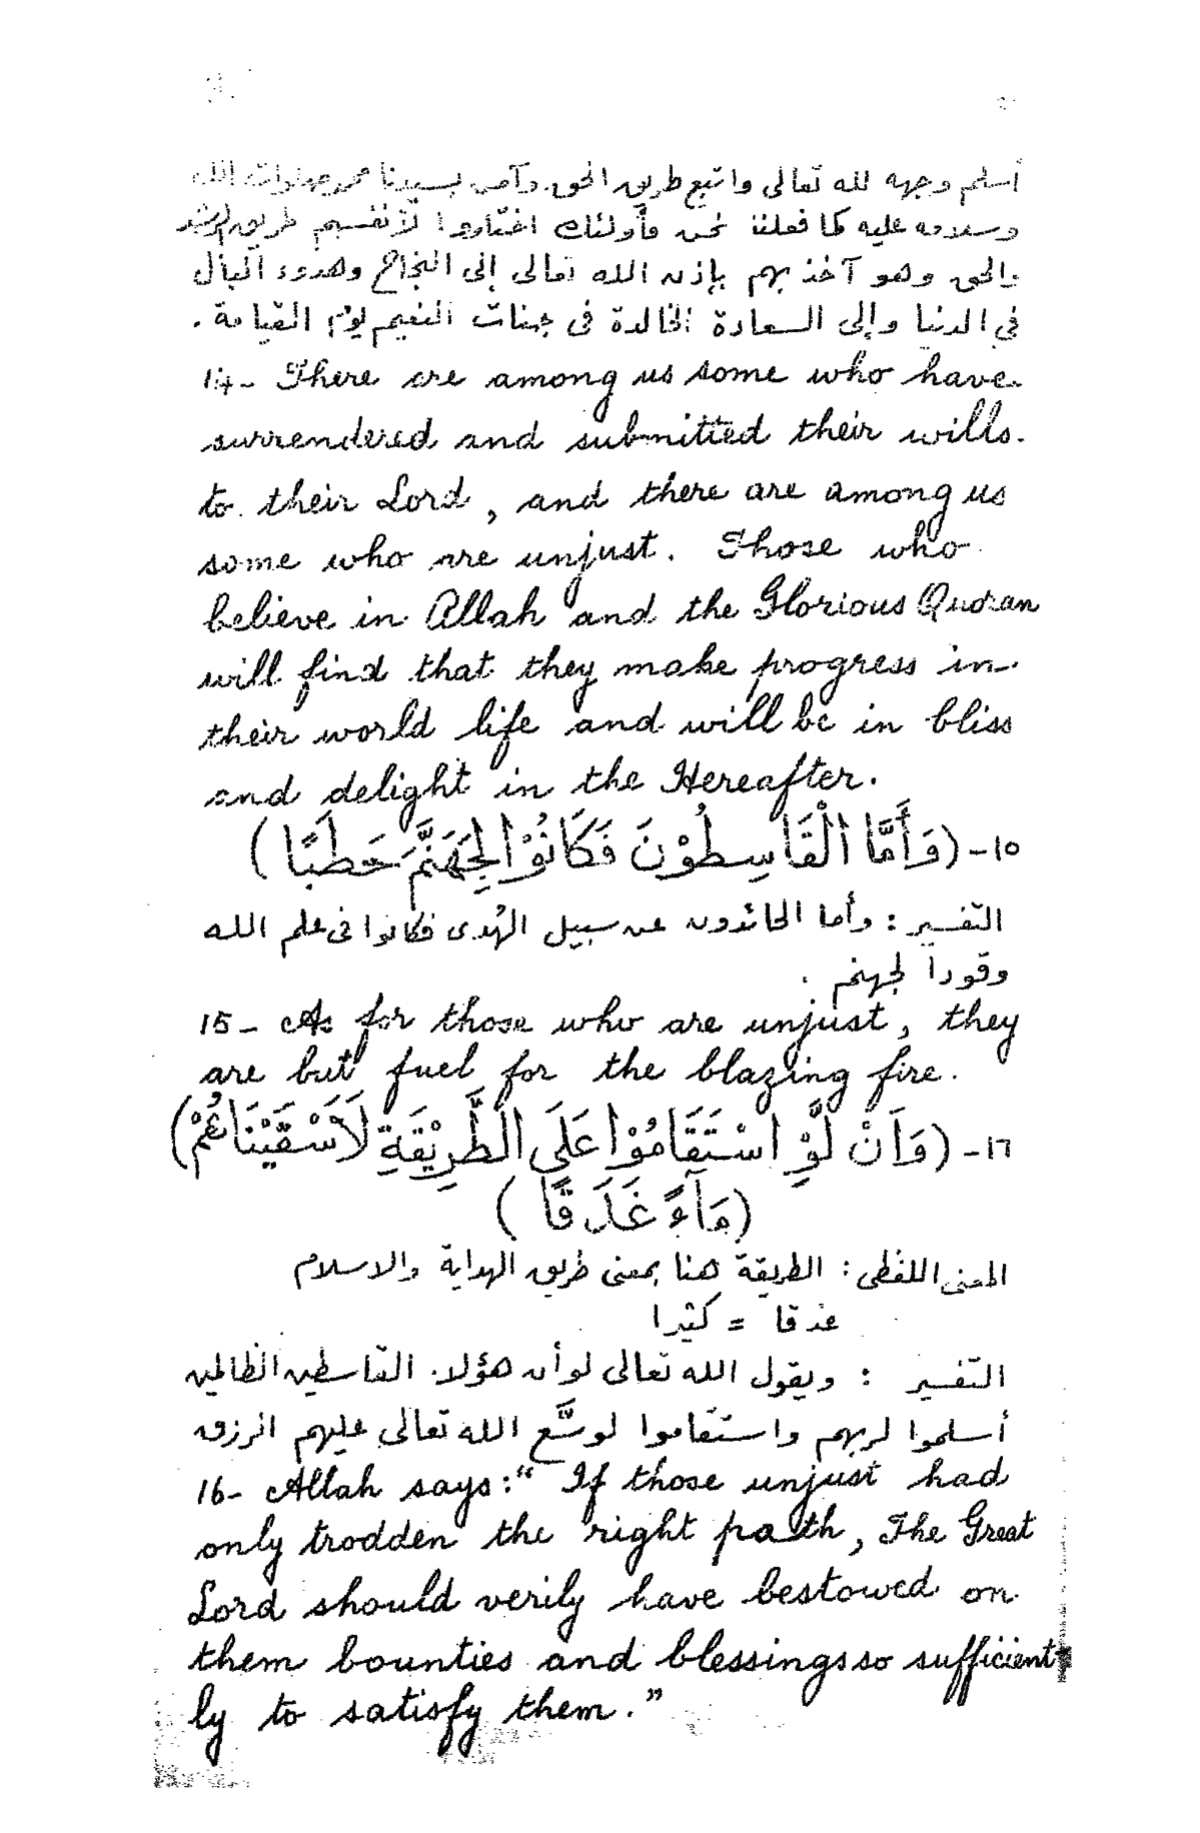 أسلم وجهه لله تعالى واتبع طريق الحق وآمن بسيدنا محمد صلوات الله
وسلامه عليه كما فعلنا نحن فأولئك اختاروا لأنفسهم طريق الرشد
والحق وهو آخذ بهم بإذن الله تعالى إلى النجاح وهدوء البال
في الدنيا وإلى السعادة الخالدة فى جنات النعيم يوم القيامة .
14- There are among us some who have
surrendered and submitted their wills
to their Lord, and there are among us
some who are unjust. Those who
believe in Allah and the Glorious Quoran
will find that they make progress in
their world life and will be in bliss
and delight in the Hereafter.
١٥- (وَأَمَّا الْقَاسِطُوْنَ فَكَانُوْا لِجَهَنَّمَ حَطَبًا)
التفسير : وأما الحائدون عن سبيل الهُدى فكانوا فى علم الله
وقوداً لجهنم .
15- As for those who are unjust, they
are but fuel for the blazing fire.
١٦- (وَاَنْ لَّوِ اسْتَقَامُوْا عَلَى الطَّرِيْقَةِ لَاَسْقَيْنَاهُمْ)
(مَآءً غَدَقًا)
المعنى اللفظى : الطريقة هنا بمعنى طريق الهداية والاسلام
غدقا = كثيرا
التفسير : ويقول الله تعالى لو أن هؤلاء القاسطين الظالمين
أسلموا لربهم واستقاموا لوسَّع الله تعالى عليهم الرزق
16- Allah says:“ If those unjust had
only trodden the right path, The Great
Lord should verily have bestowed on
them bounties and blessings so sufficient
ly to satisfy them.”